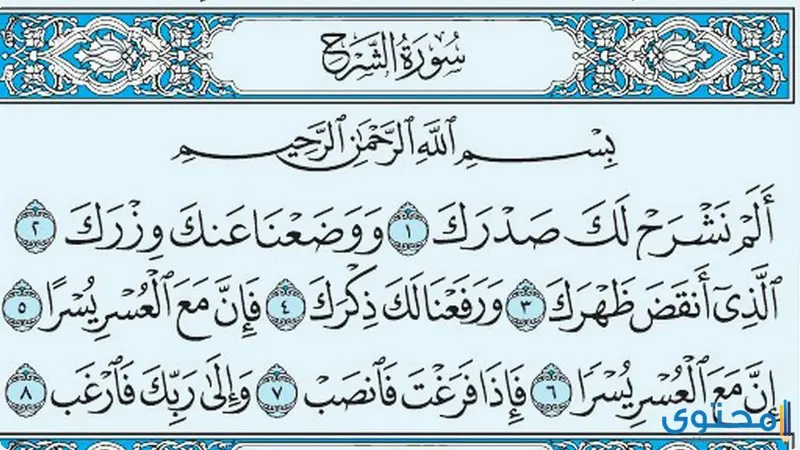 سُورَةُ الشَّرْحِ
بِسْمِ ٱللَّهِ ٱلرَّحْمَٰنِ ٱلرَّحِيمِ
أَلَمْ نَشْرَحْ لَكَ صَدْرَكَ ١ وَوَضَعْنَا عَنكَ وِزْرَكَ ٢
ٱلَّذِىٓ أَنقَضَ ظَهْرَكَ ٣ وَرَفَعْنَا لَكَ ذِكْرَكَ ٤ فَإِنَّ مَعَ ٱلْعُسْرِ يُسْرًا ٥
إِنَّ مَعَ ٱلْعُسْرِ يُسْرًا ٦ فَإِذَا فَرَغْتَ فَٱنصَبْ ٧ وَإِلَىٰ رَبِّكَ فَٱرْغَب ٨
محتوى